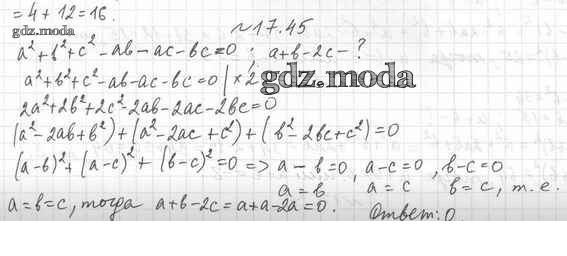 = 4 + 12 = 16.
gdz.moda
~17.45
a² + b² + c² - ab - ac - bc = 0 ; a+b-2c - ?
a² + b² + c² - ab - ac - bc = 0 | × 2
gdz.moda
2a² + 2b² + 2c² - 2ab - 2ac - 2bc = 0
(a² - 2ab + b²) + (a² - 2ac + c²) + (b² - 2bc + c²) = 0
(a-b)² + (a-c)² + (b-c)² = 0 => a - b = 0, a - c = 0, b - c = 0
a = b a = c b = c, т.е.
a = b = c, тогда a+b-2c = a+a-2a = 0. Ответ: 0